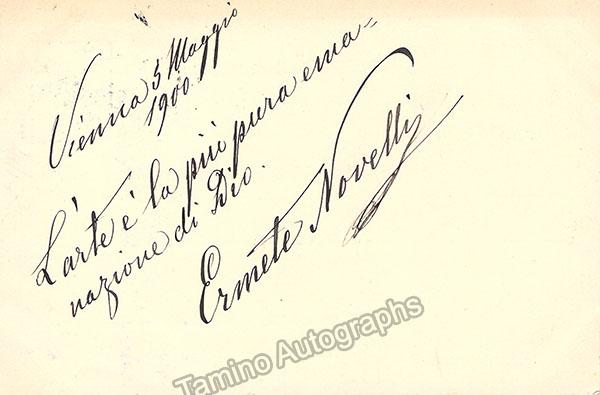 Vienna 5 Maggio
1900.
L'arte è la più pura ema-
nazione di Dio.
Ermete Novelli
Tamino Autographs